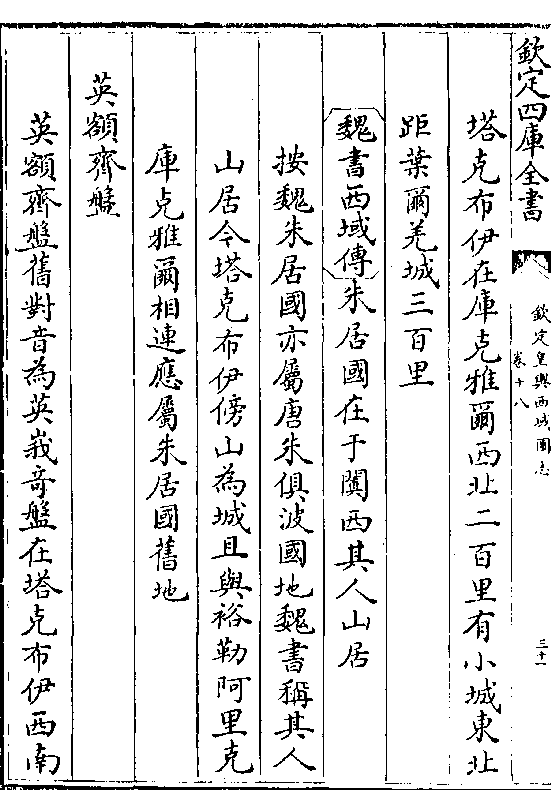 欽定四庫全書
欽定皇輿西域圖志
卷十八
三十一
塔克布伊在庫克雅爾西北二百里有小城東北
距葉爾羌城三百里
魏書西域傳朱居國在于闐西其人山居
按魏朱居國亦屬唐朱俱波國地魏書稱其人
山居今塔克布伊傍山為城且與裕勒阿里克
庫克雅爾相連應屬朱居國舊地
英額齊盤
英額齊盤舊對音為英峩奇盤在塔克布伊西南